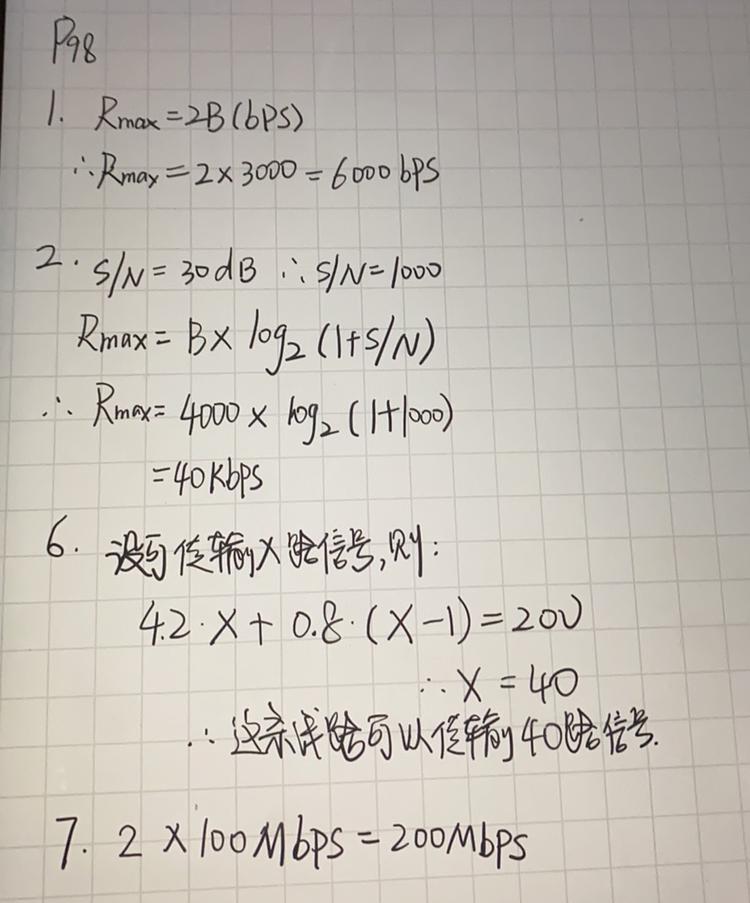 P98
1. Rmax=2B(bps)
∴Rmax=2×3000=6000bps
2. S/N=30dB ∴S/N=1000
Rmax=B×log₂(1+S/N)
∴ Rmax=4000×log₂(1+1000)
=40Kbps
6. 设可传输X路信号,则:
4.2·X+0.8·(X-1)=200
∴X=40
∴这条线路可以传输40路信号.
7. 2×100Mbps=200Mbps